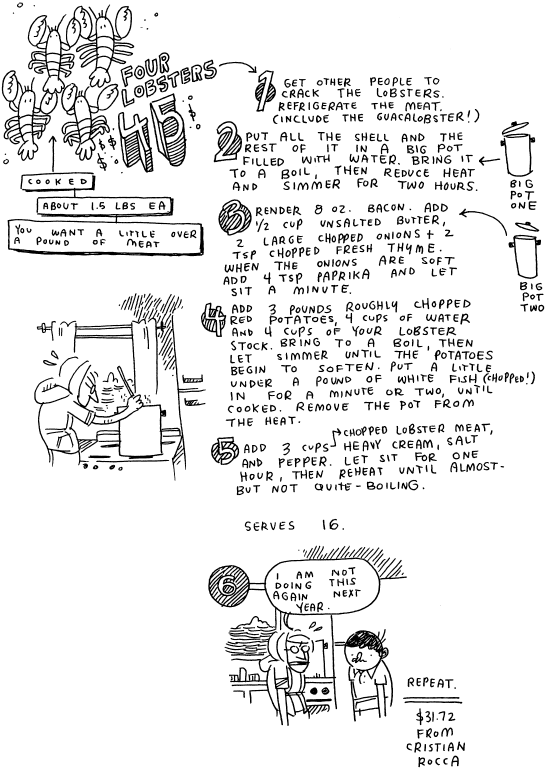 FOUR
LOBSTERS
45
COOKED
ABOUT 1.5 LBS EA
YOU WANT A LITTLE OVER
A POUND OF MEAT
1 GET OTHER PEOPLE TO
CRACK THE LOBSTERS.
REFRIGERATE THE MEAT.
(INCLUDE THE GUACALOBSTER!)
2 PUT ALL THE SHELL AND THE
REST OF IT IN A BIG POT
FILLED WITH WATER. BRING IT
TO A BOIL, THEN REDUCE HEAT
AND SIMMER FOR TWO HOURS.
BIG
POT
ONE
3 RENDER 8 OZ. BACON. ADD
1/2 CUP UNSALTED BUTTER,
2 LARGE CHOPPED ONIONS + 2
TSP CHOPPED FRESH THYME.
WHEN THE ONIONS ARE SOFT
ADD 4 TSP PAPRIKA AND LET
SIT A MINUTE.
BIG
POT
TWO
4 ADD 3 POUNDS ROUGHLY CHOPPED
RED POTATOES, 4 CUPS OF WATER
AND 4 CUPS OF YOUR LOBSTER
STOCK. BRING TO A BOIL, THEN
LET SIMMER UNTIL THE POTATOES
BEGIN TO SOFTEN. PUT A LITTLE
UNDER A POUND OF WHITE FISH (CHOPPED!)
IN FOR A MINUTE OR TWO, UNTIL
COOKED. REMOVE THE POT FROM
THE HEAT.
CHOPPED LOBSTER MEAT,
5 ADD 3 CUPS HEAVY CREAM, SALT
AND PEPPER. LET SIT FOR ONE
HOUR, THEN REHEAT UNTIL ALMOST-
BUT NOT QUITE-BOILING.
SERVES 16.
6
I AM NOT
DOING THIS
AGAIN NEXT
YEAR.
REPEAT.
$31.72
FROM
CRISTIAN
ROCCA